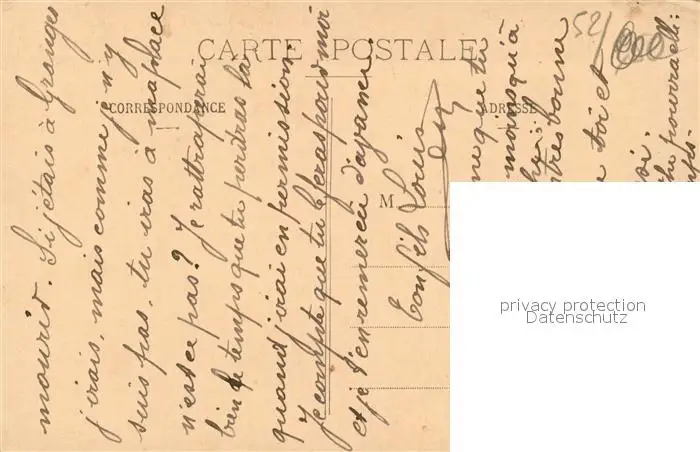 CARTE POSTALE
CORRESPONDANCE
ADRESSE
M.
52/
mourir. Si j'étais à Granges
j'irais, mais comme je n'y
suis pas, tu iras à ma place
n'est ce pas? Je rattraperai
bien le temps que tu perdras la
quand j'irai en permission.
Je compte que tu le feras pour moi
et je t'en remercie d'avance.
Ton fils Louis
me que tu
moins qu'à
très bonne
toi et
privacy protection
Datenschutz